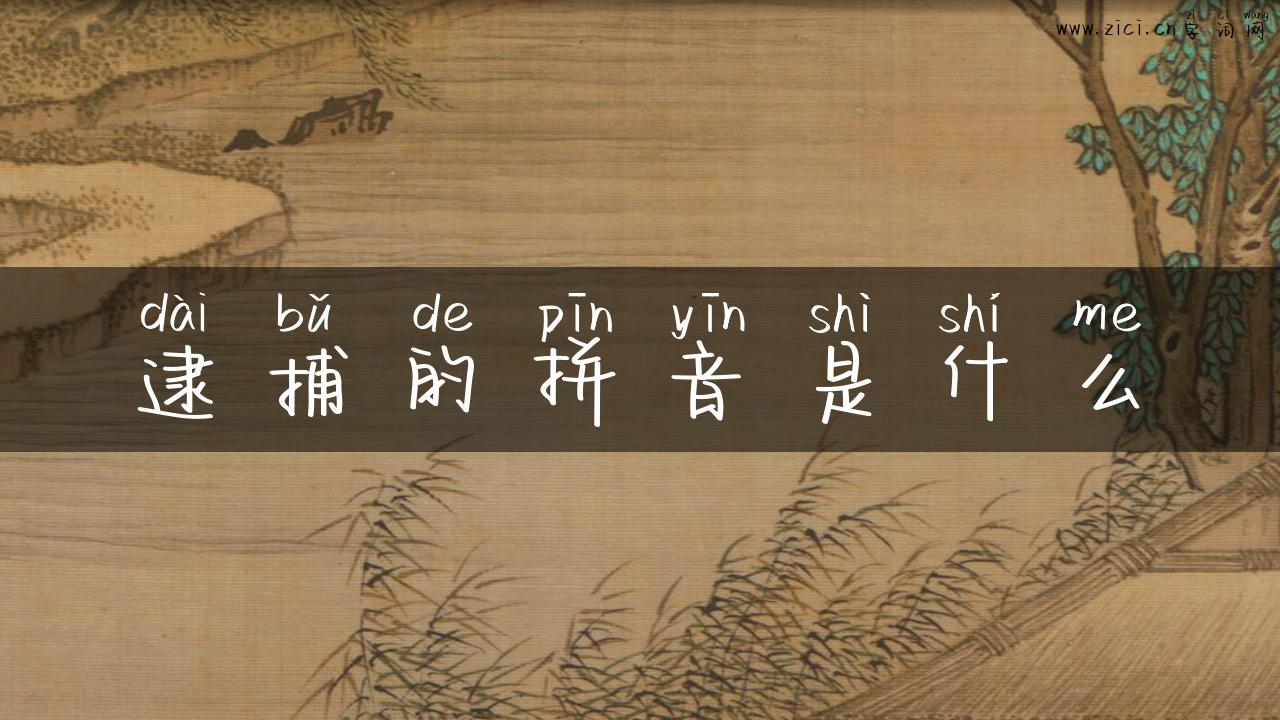 zì cí wǎng
www.zici.cn字词网
dài bǔ de pīn yīn shì shí me
逮捕的拼音是什么